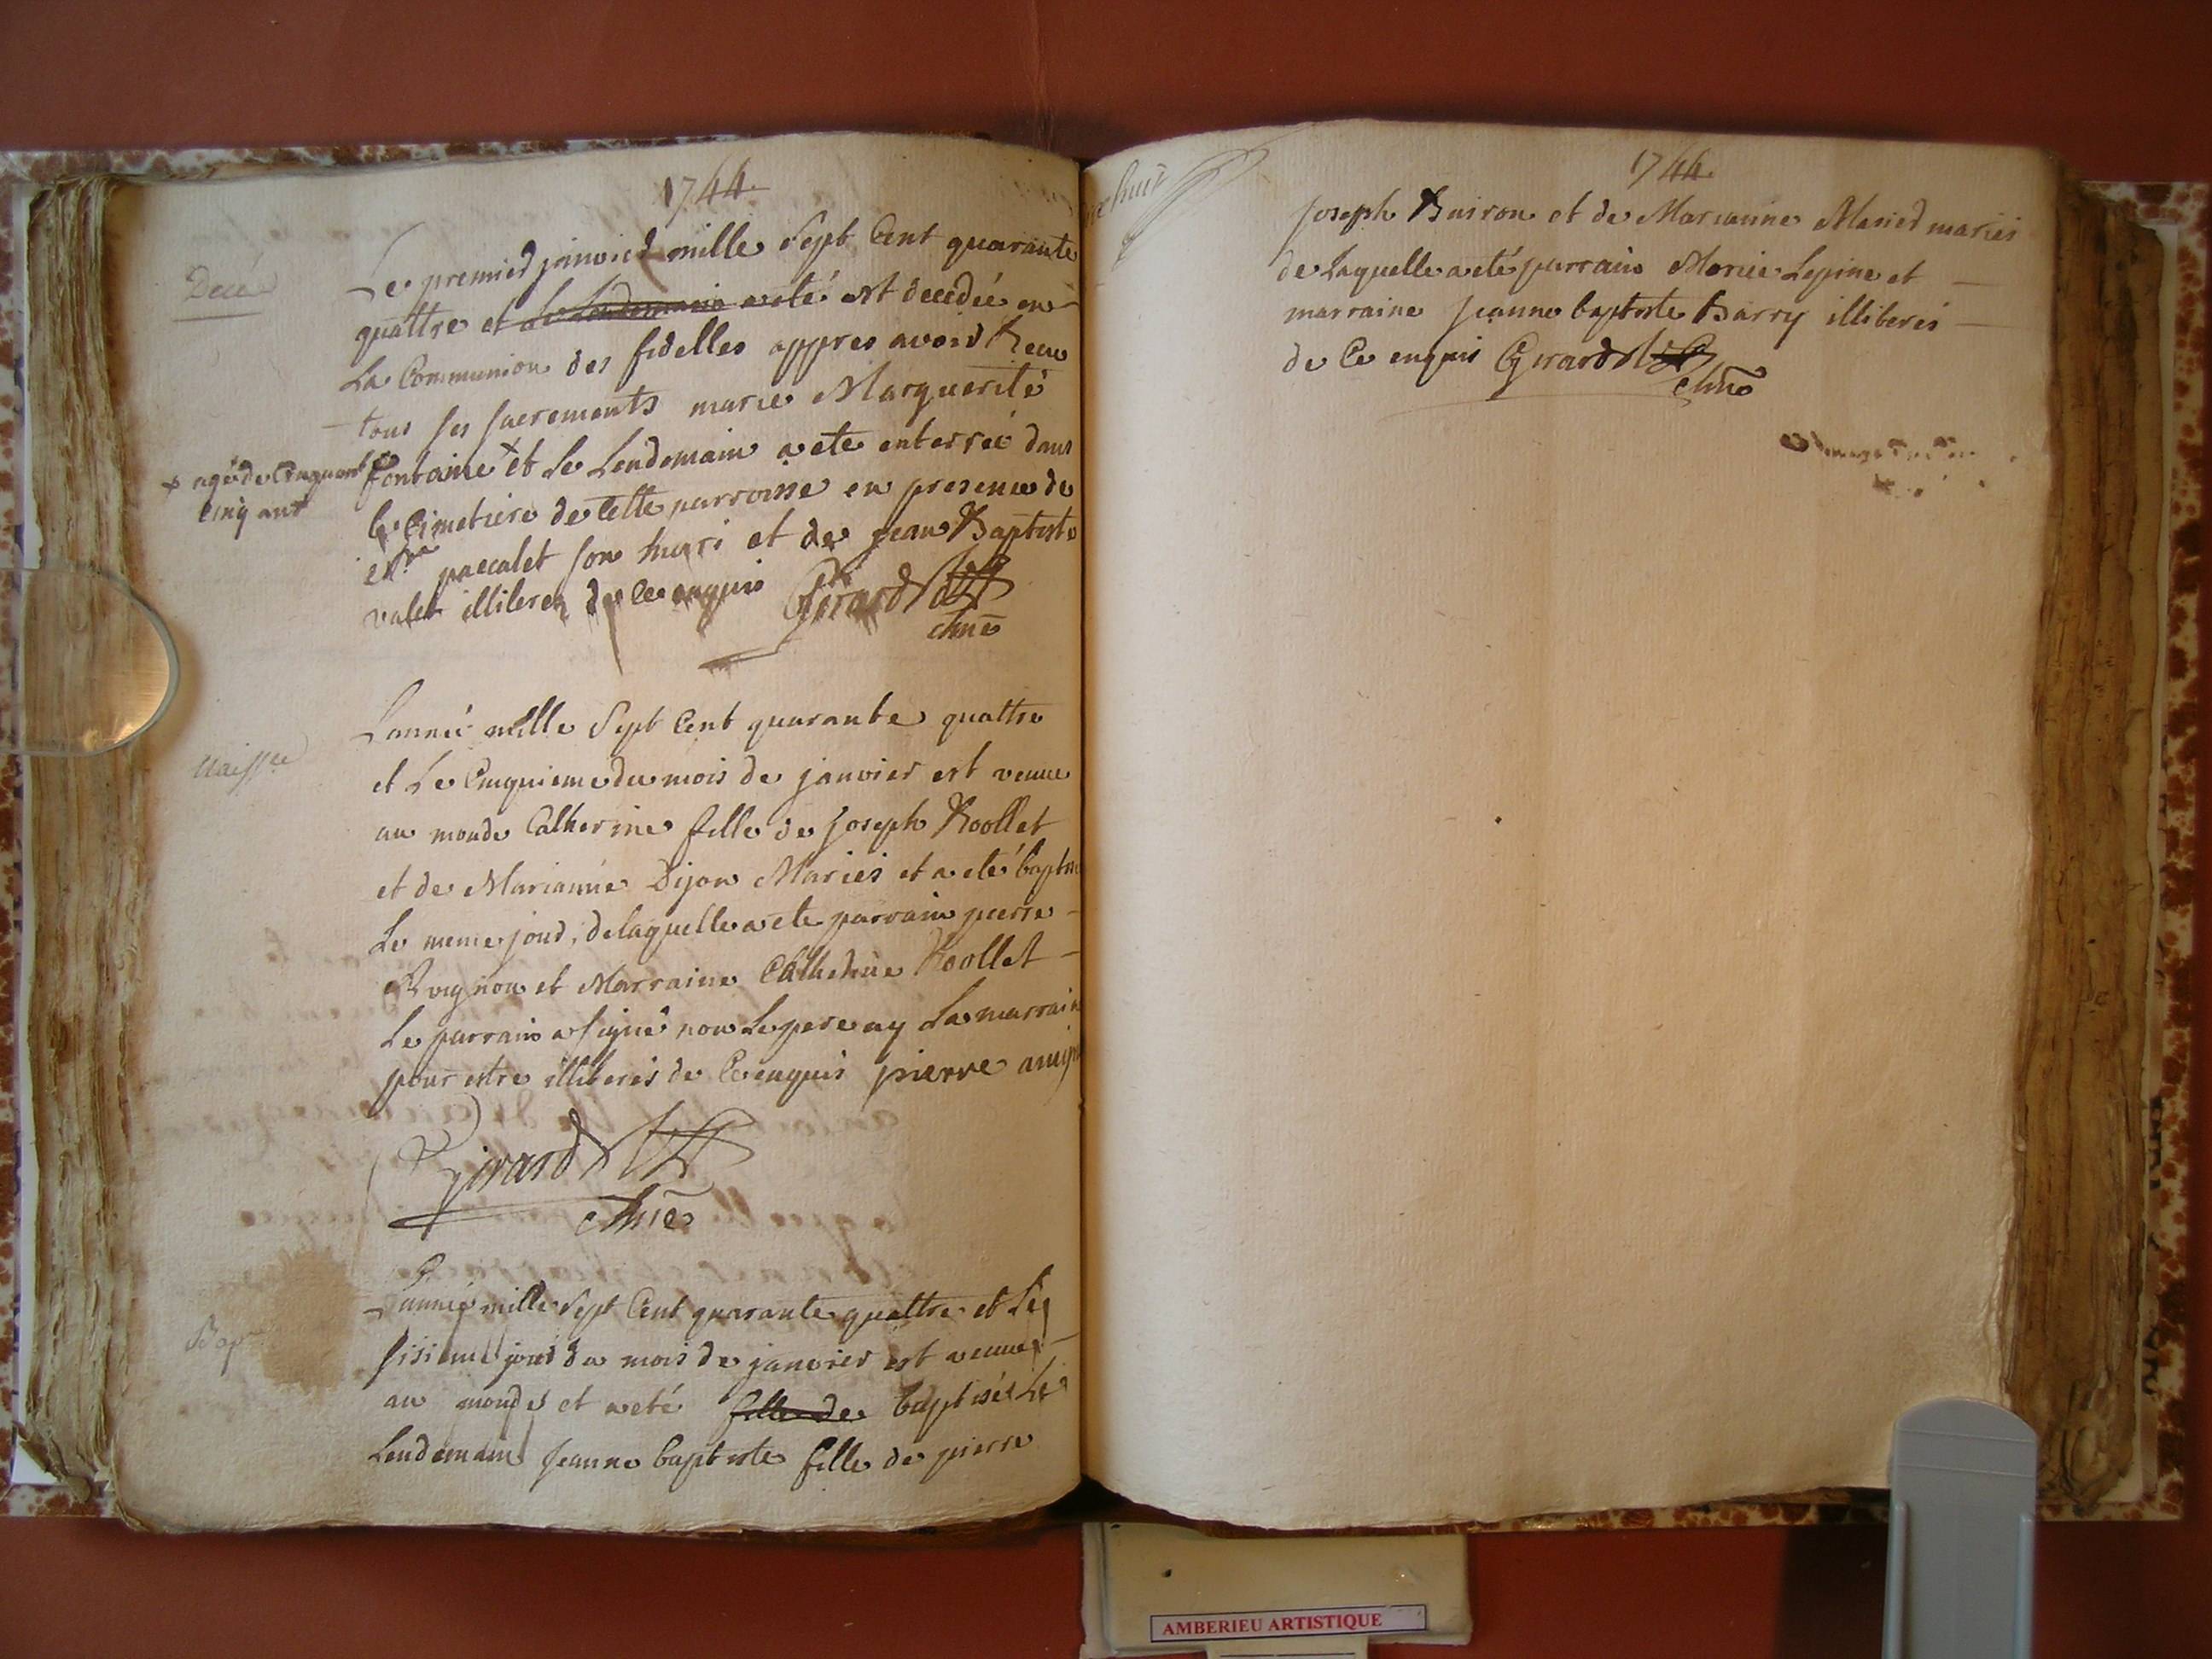 1744
Decé
Le premier janvier mille Sept Cent quarante
quattre et le Lendemain a eté est decedée en
La Communion des fidelles appres avoir Recu
tous ses sacrements marie Marguerite
fontaine + et Le Lendemain a ete enterreé dans
+ agé de Cinquant
cinq ans
le Cimetiere de Cette parroisse en presence de
paccalet son mari et de jean Baptiste
valet illiteréz de ce enquis Girard
Naissce
L'anneé mille Sept Cent quarante quattre
et Le Cinquieme du mois de janvier est venue
au monde Catherine fille de Joseph Roollet
et de Marianne Dijon Mariés et a eté baptise
Le meme jour, de laquelle a ete parrain pierre
Avignon et Marraine Catherine Roollet
Le parrain a signé non Le pere ny La marraine
pour estre illiterés de Ce enquis pierre
Girard
Bap
L'anneé mille Sept Cent quarante quattre et Le
sisieme jour du mois de janvier est venue
au monde et a eté fille de baptiseé Le
Lendemain jeanne baptiste fille de pierre
huit
1744
Joseph Buiron et de Marianne mariés
de Laquelle a eté parrain Lepine et
marraine jeanne baptiste Barry illiterés
de Ce enquis Girard
AMBERIEU ARTISTIQUE